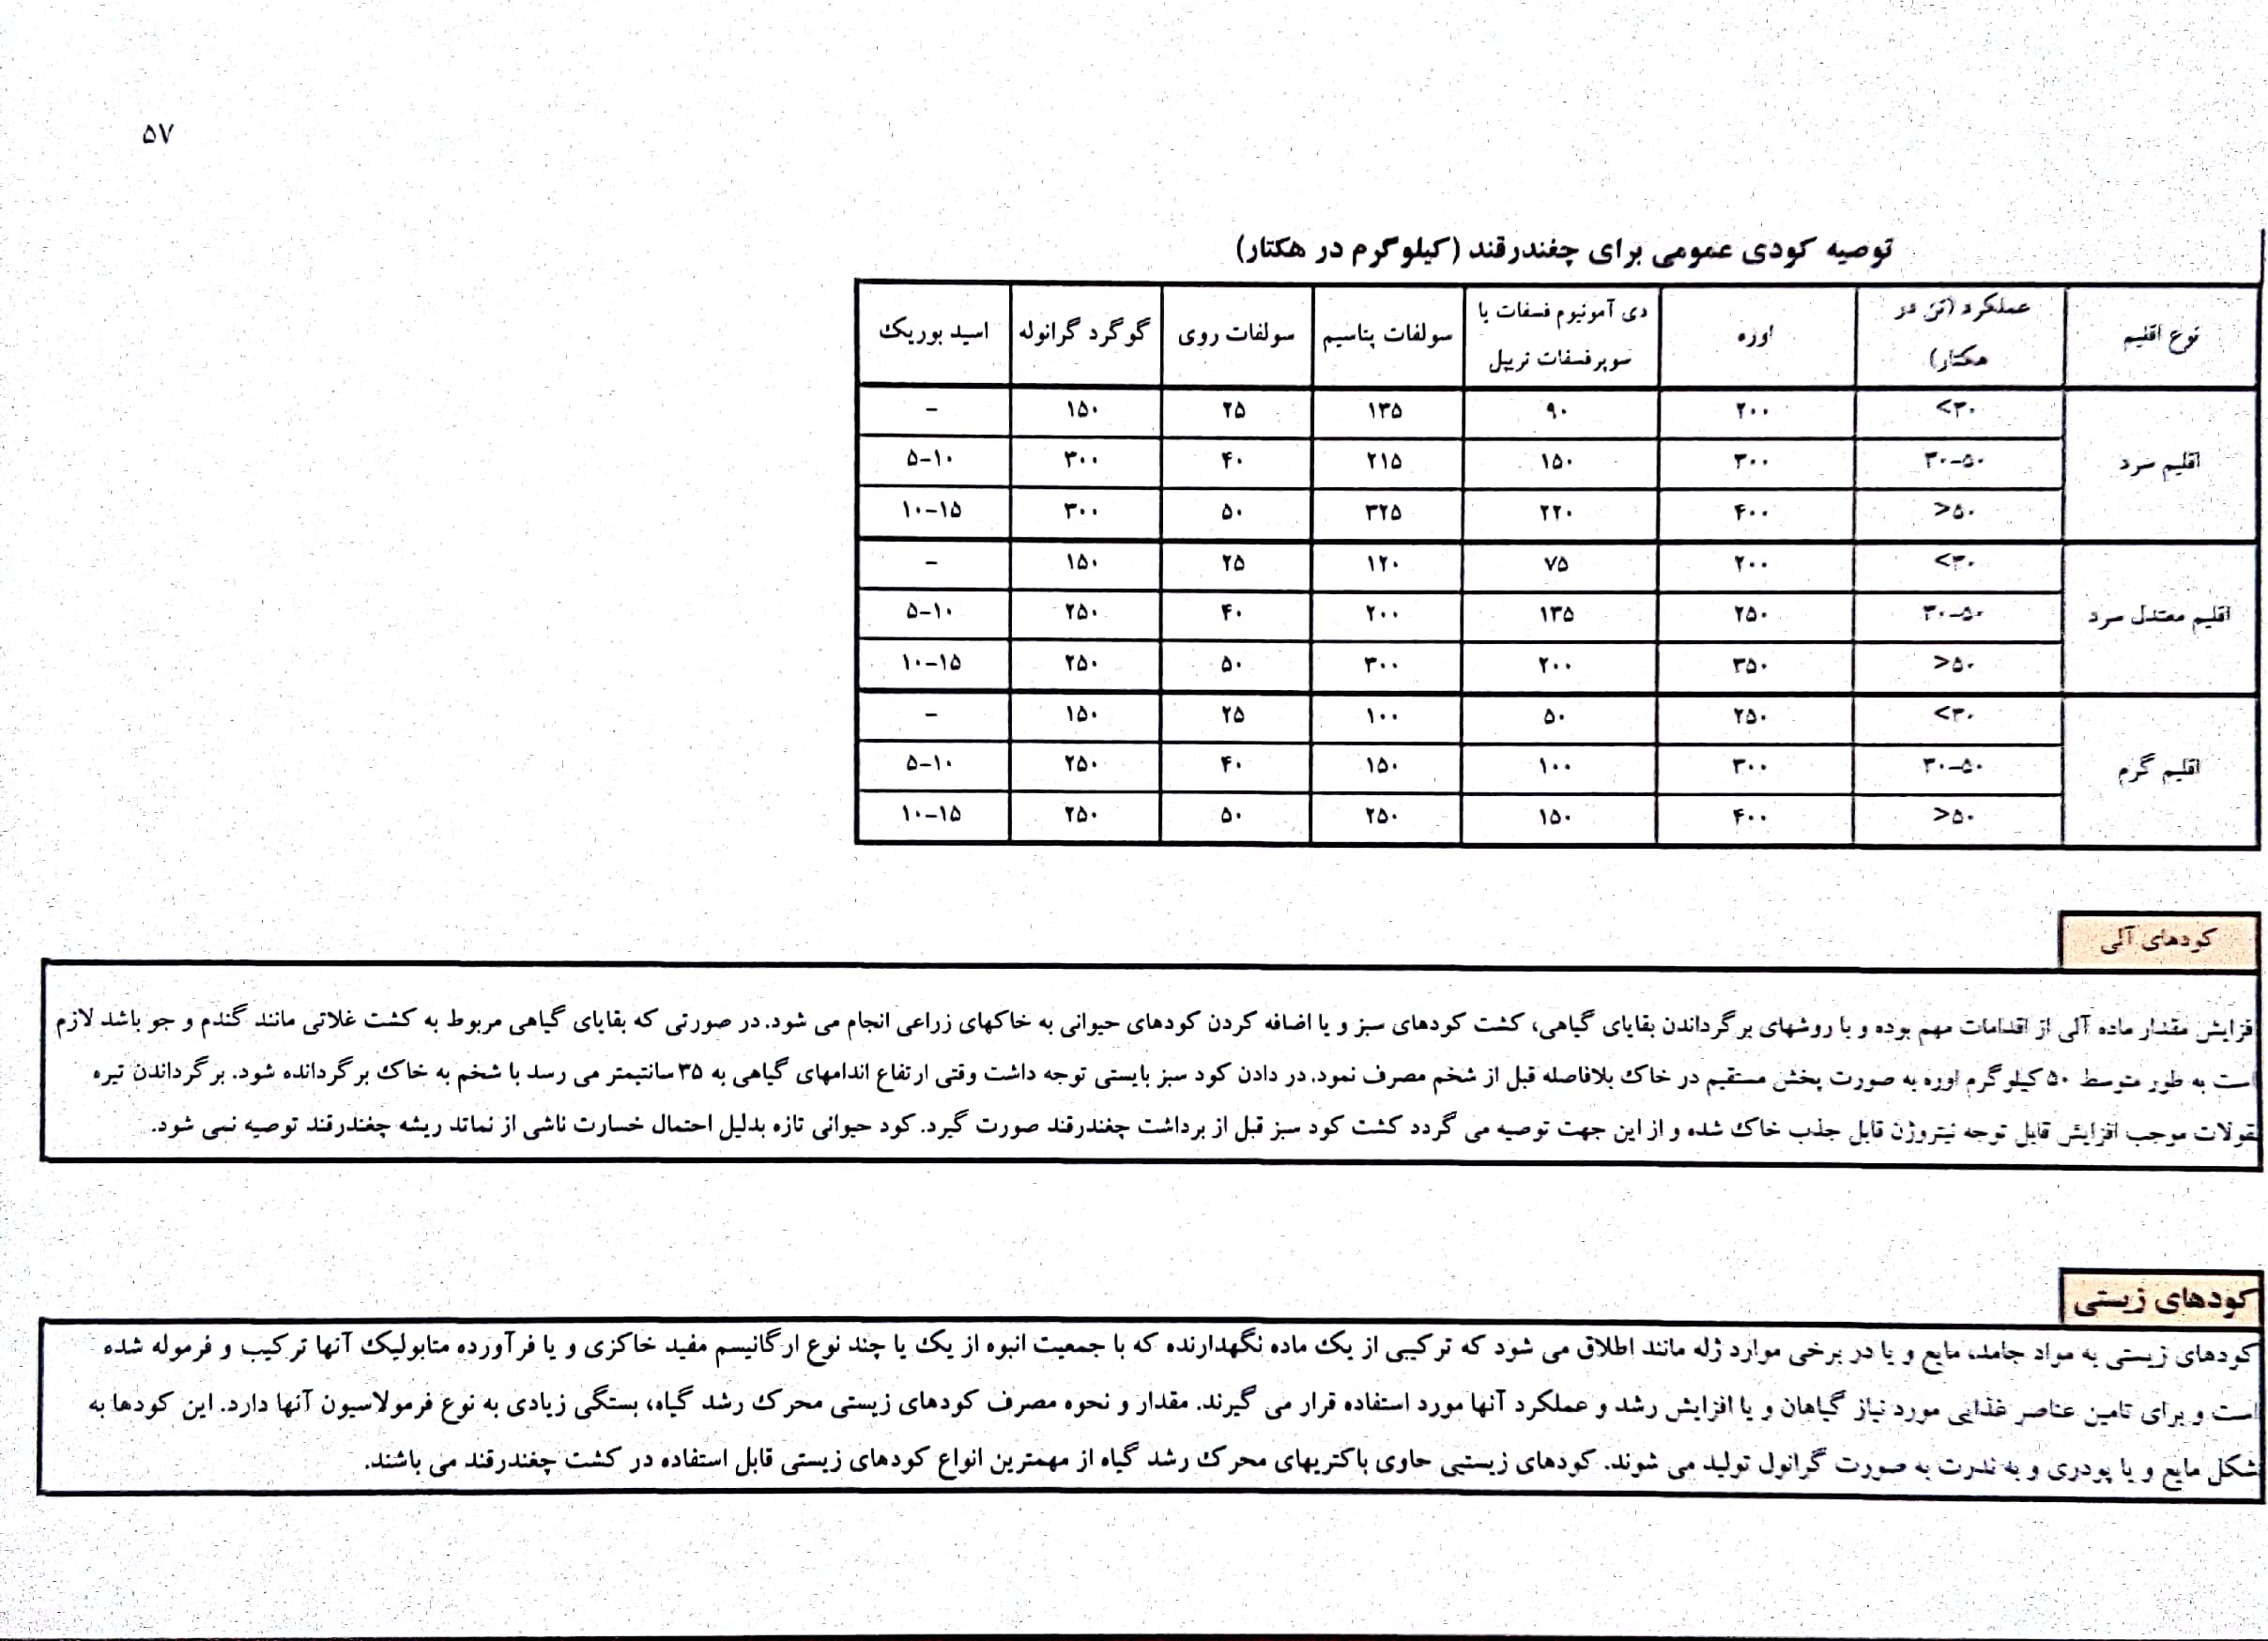 ۵۷
توصیه کودی عمومی برای چغندرقند (کیلوگرم در هکتار)
نوع اقلیم عملکرد (تن در هکتار) اوره دی آمونیوم فسفات یا سوپرفسفات تریپل سولفات پتاسیم سولفات روی گوگرد گرانوله اسید بوریک
اقلیم سرد <۳۰ ۲۰۰ ۹۰ ۱۳۵ ۲۵ ۱۵۰ –
۳۰-۵۰ ۳۰۰ ۱۵۰ ۲۱۵ ۴۰ ۳۰۰ ۵-۱۰
>۵۰ ۴۰۰ ۲۲۰ ۳۲۵ ۵۰ ۳۰۰ ۱۰-۱۵
اقلیم معتدل سرد <۳۰ ۲۰۰ ۷۵ ۱۲۰ ۲۵ ۱۵۰ –
۳۰-۵۰ ۲۵۰ ۱۳۵ ۲۰۰ ۴۰ ۲۵۰ ۵-۱۰
>۵۰ ۳۵۰ ۲۰۰ ۳۰۰ ۵۰ ۲۵۰ ۱۰-۱۵
اقلیم گرم <۳۰ ۲۵۰ ۵۰ ۱۰۰ ۲۵ ۱۵۰ –
۳۰-۵۰ ۳۰۰ ۱۰۰ ۱۵۰ ۴۰ ۲۵۰ ۵-۱۰
>۵۰ ۴۰۰ ۱۵۰ ۲۵۰ ۵۰ ۲۵۰ ۱۰-۱۵
کودهای آلی
فزایش مقدار ماده آلی از اقدامات مهم بوده و با روشهای برگرداندن بقایای گیاهی، کشت کودهای سبز و یا اضافه کردن کودهای حیوانی به خاکهای زراعی انجام می شود. در صورتی که بقایای گیاهی مربوط به کشت غلاتی مانند گندم و جو باشد لازم
است به طور متوسط ۵۰ کیلوگرم اوره به صورت پخش مستقیم در خاک بلافاصله قبل از شخم مصرف نمود. در دادن کود سبز بایستی توجه داشت وقتی ارتفاع اندامهای گیاهی به ۳۵ سانتیمتر می رسد با شخم به خاک برگردانده شود. برگرداندن تیره
بقولات موجب افزایش قابل توجه نیتروژن قابل جذب خاک شده و از این جهت توصیه می گردد کشت کود سبز قبل از برداشت چغندرقند صورت گیرد. کود حیوانی تازه بدلیل احتمال خسارت ناشی از نماتد ریشه چغندرقند توصیه نمی شود.
کودهای زیستی
کودهای زیستی به مواد جامد، مایع و یا در برخی موارد ژله مانند اطلاق می شود که ترکیبی از یک ماده نگهدارنده که با جمعیت انبوه از یک یا چند نوع ارگانیسم مفید خاکزی و یا فرآورده متابولیک آنها ترکیب و فرموله شده
است و برای تامین عناصر غذایی مورد نیاز گیاهان و یا افزایش رشد و عملکرد آنها مورد استفاده قرار می گیرند. مقدار و نحوه مصرف کودهای زیستی محرک رشد گیاه، بستگی زیادی به نوع فرمولاسیون آنها دارد. این کودها به
شکل مایع و یا پودری و به ندرت به صورت گرانول تولید می شوند. کودهای زیستیی حاوی باکتریهای محرک رشد گیاه از مهمترین انواع کودهای زیستی قابل استفاده در کشت چغندرقند می باشند.